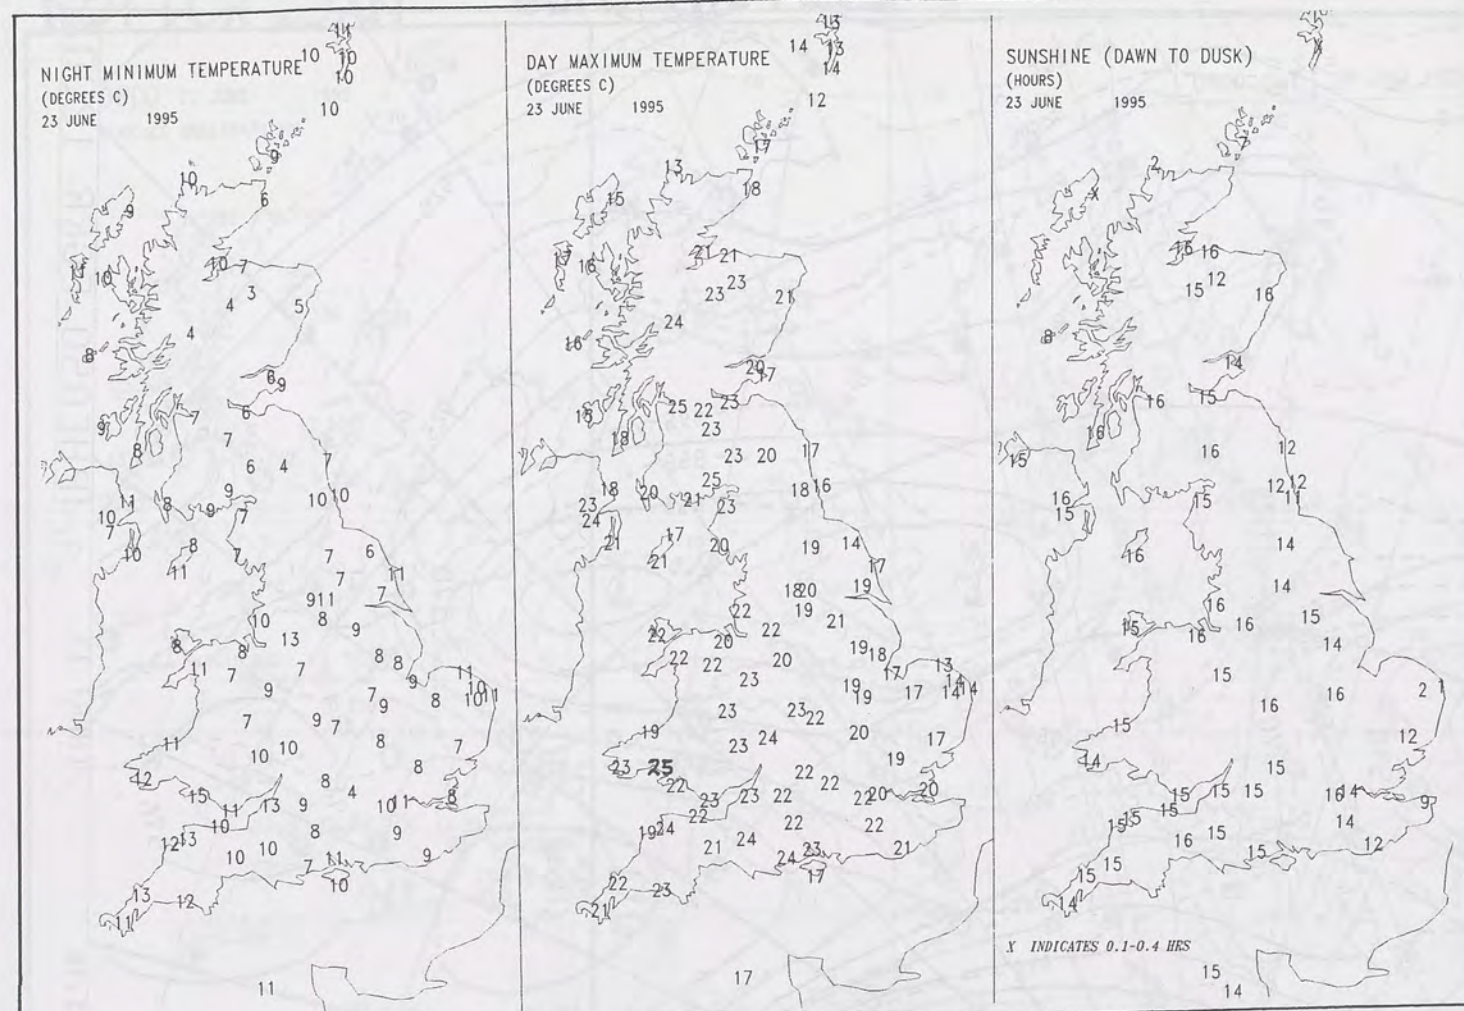 NIGHT MINIMUM TEMPERATURE
(DEGREES C)
23 JUNE 1995
10 10
10
10
9
10
6
9
10
10 7
3
4 5
4
8
6 9
7 6
9 7
8
6 4 7
9
11 8 9 10 10
10
7 7
10 8 7 7 6
11
7 11
9 11 7
10 8
13 9
8 8 8 8
11 7 7 11
9 9 10
7 8 10 11
7 9 7 9
11 10 10 8 7
12 8 8
15 4 8
11 13 9 10 11
10 8 9
12 13 10 10
7 11 9
10
13 12
11
11
DAY MAXIMUM TEMPERATURE
(DEGREES C)
23 JUNE 1995
13
14 13
14
12
17
13
18
15
17 16 21 21
23
23 21
24
16
20 17
18 25 22 23
18 23
23 20 17
25
18 20 21 18 16
23 23
24
21 17 20 19 14
21
17
18 20 19
22 19 21
22 20 22 19 18
22 22 20
23 17 13
19 19 17 14 14 14
23 23 22
19 23 24 20 17
23 25 22 22 19
22 23 23 22 22 20 20
22 22 22
19 24 24
21 24 23 21
22 23 17
21
17
SUNSHINE (DAWN TO DUSK)
(HOURS)
23 JUNE 1995
X
2 7
X
16 16
12
15 16
8
14
16 15
16
15 16 12
12 12
16 15 11
15
16 14
14
16 15
15 16 16 14
15
16 16 2 1
15 12
14 15
15 15 15 16 14 9
15 15 15 14
16 15 12
15 15 15
14
X INDICATES 0.1-0.4 HRS
15
14